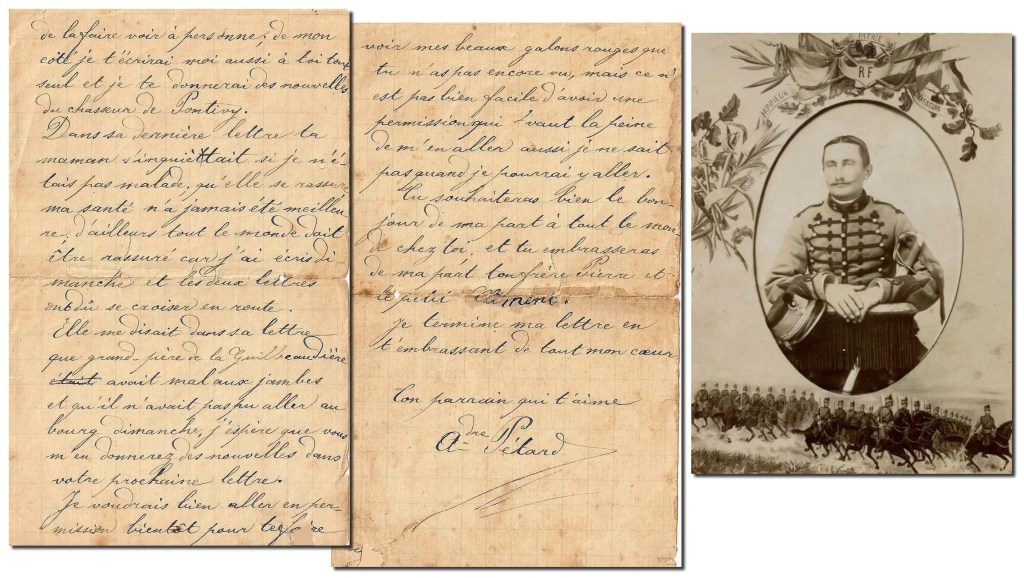 de la faire voir à personne; de mon
côté je t'écrirai moi aussi à toi tout
seul et je te donnerai des nouvelles
du chasseur de Pontivy.
Dans sa dernière lettre ta
maman s'inquiéttait si je n'é-
tais pas malade, qu'elle se rassure
ma santé n'a jamais été meilleu
re, d'ailleurs tout le monde doit
être rassuré car j'ai écris di
manche et les deux lettres
ont dû se croiser en route.
Elle me disait dans sa lettre
que grand-père de la Guilbeaudière
était avait mal aux jambes
et qu'il n'avait pas pu aller au
bourg dimanche, j'espère que vous
m'en donnerez des nouvelles dans
votre prochaine lettre.
Je voudrais bien aller en per-
mission bientôt pour te faire
voir mes beaux galons rouges que
tu n'as pas encore vu, mais ce n'
est pas bien facile d'avoir une
permission qui vaut la peine
de m'en aller aussi je ne sait
pas quand je pourrai y aller.
Tu souhaiteras bien le bon
jour de ma part à tout le mon
de chez toi, et tu embrasseras
de ma part ton frère Pierre et
le petit
Je termine ma lettre en
t'embrassant de tout mon cœur
Ton parrain qui t'aime
Adre Pétard
PATRIE
RF
HONNEUR